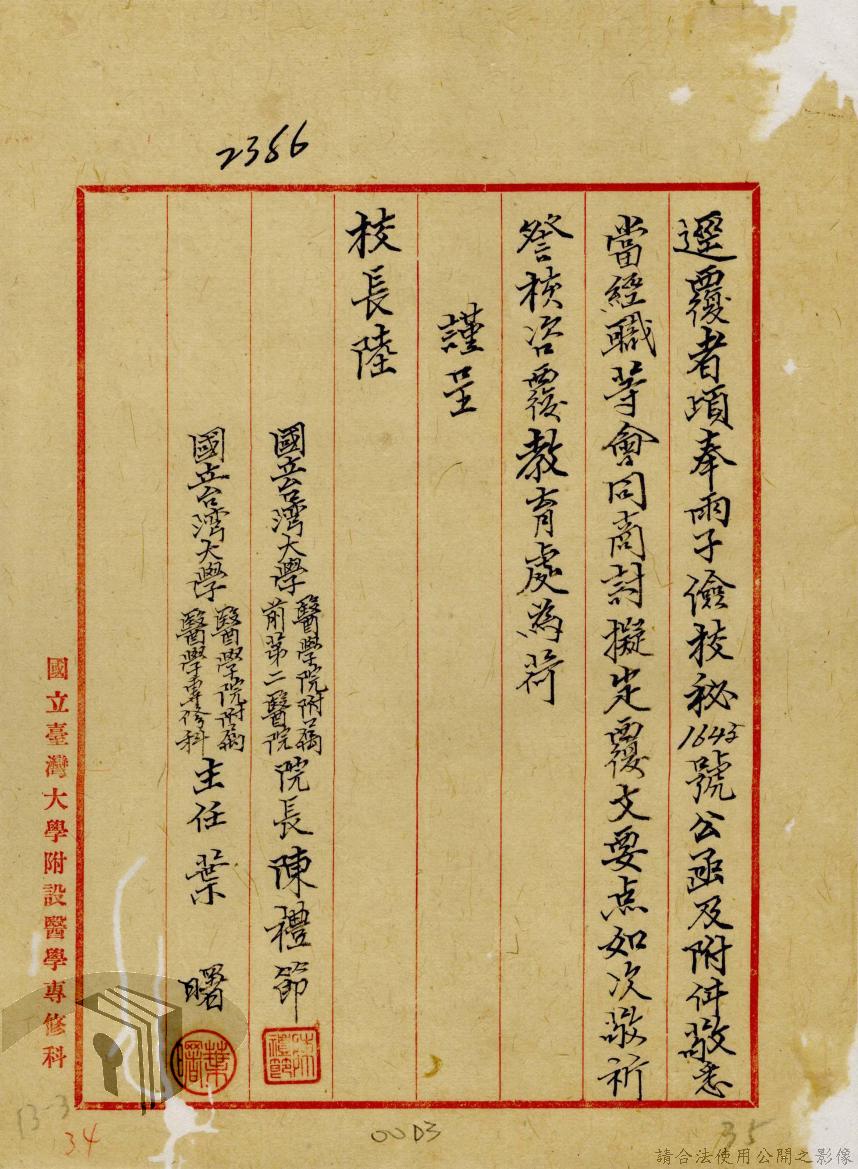 2386
逕覆者頃奉兩子儉校秘1645號公函及附件敬悉
當經職等會同商討擬定覆文要点如次敬祈
詧核咨覆教育處為荷
謹呈
校長陸
國立台灣大學醫學院附屬前第二醫院院長陳禮節
陳禮節
國立台灣大學醫學院附屬醫學專修科主任葉曙
葉曙
國立臺灣大學附設醫學專修科
13-3
34
00D3
35
請合法使用公開之影像